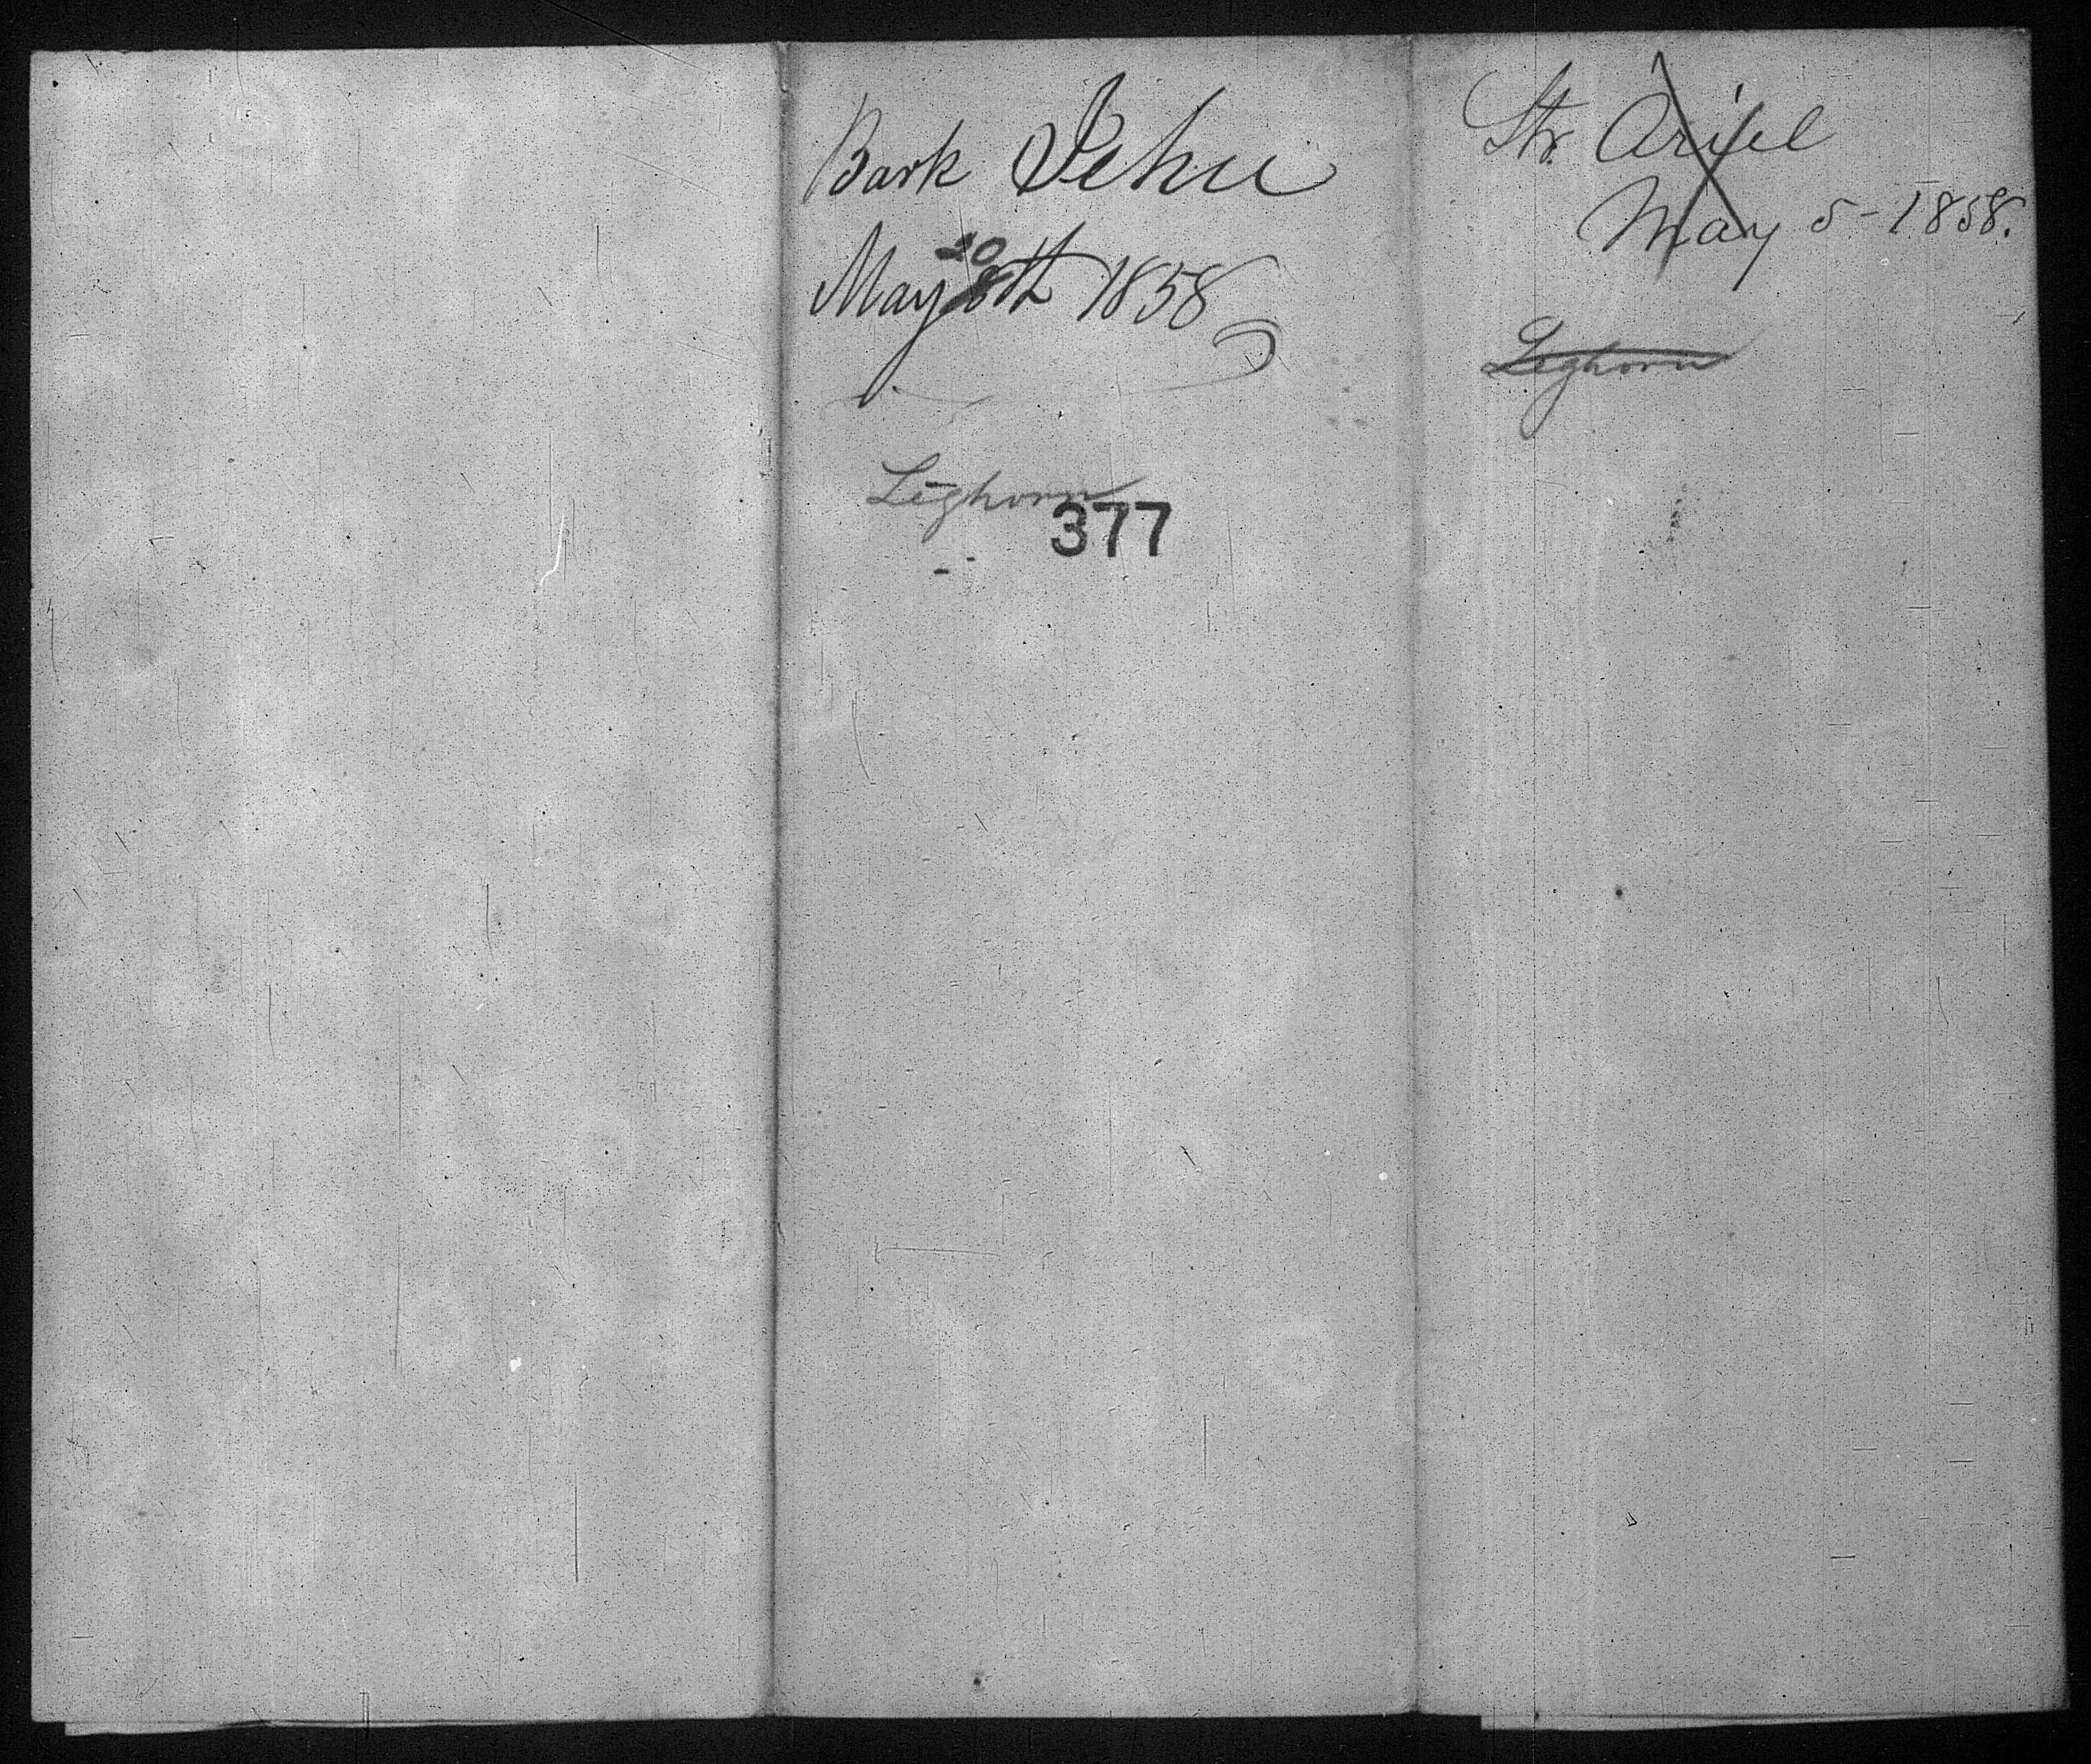 Bark Jehu
20
May 8th 1858
Leghorn
377
Str. Ariel
May 5-1858.
Leghorn